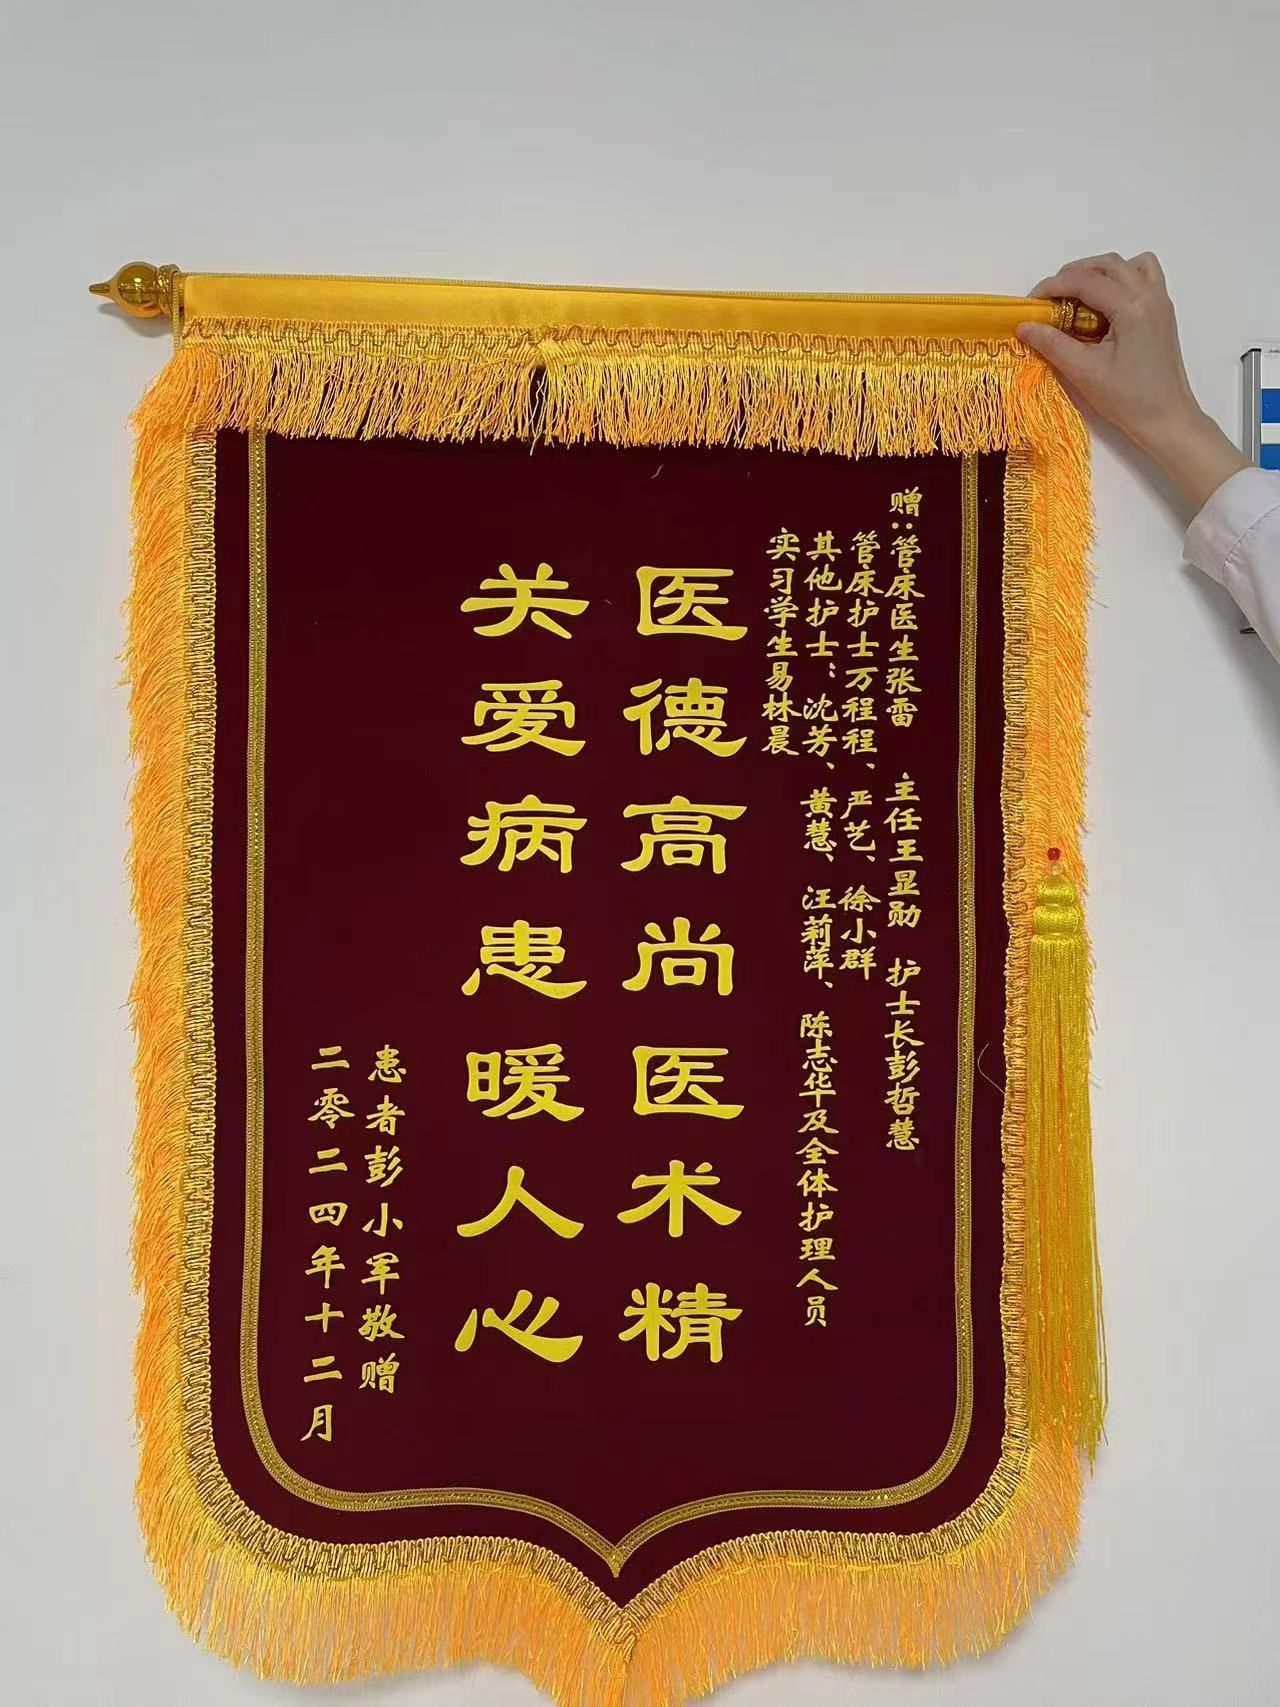 赠：管床医生张雷 主任王显勋 护士长彭哲慧
管床护士万程程、严艺、徐小群
其他护士：沈芳、黄慧、汪莉萍、陈志华及全体护理人员
实习学生易林晨
医德高尚医术精
关爱病患暖人心
患者彭小军敬赠
二零二四年十二月